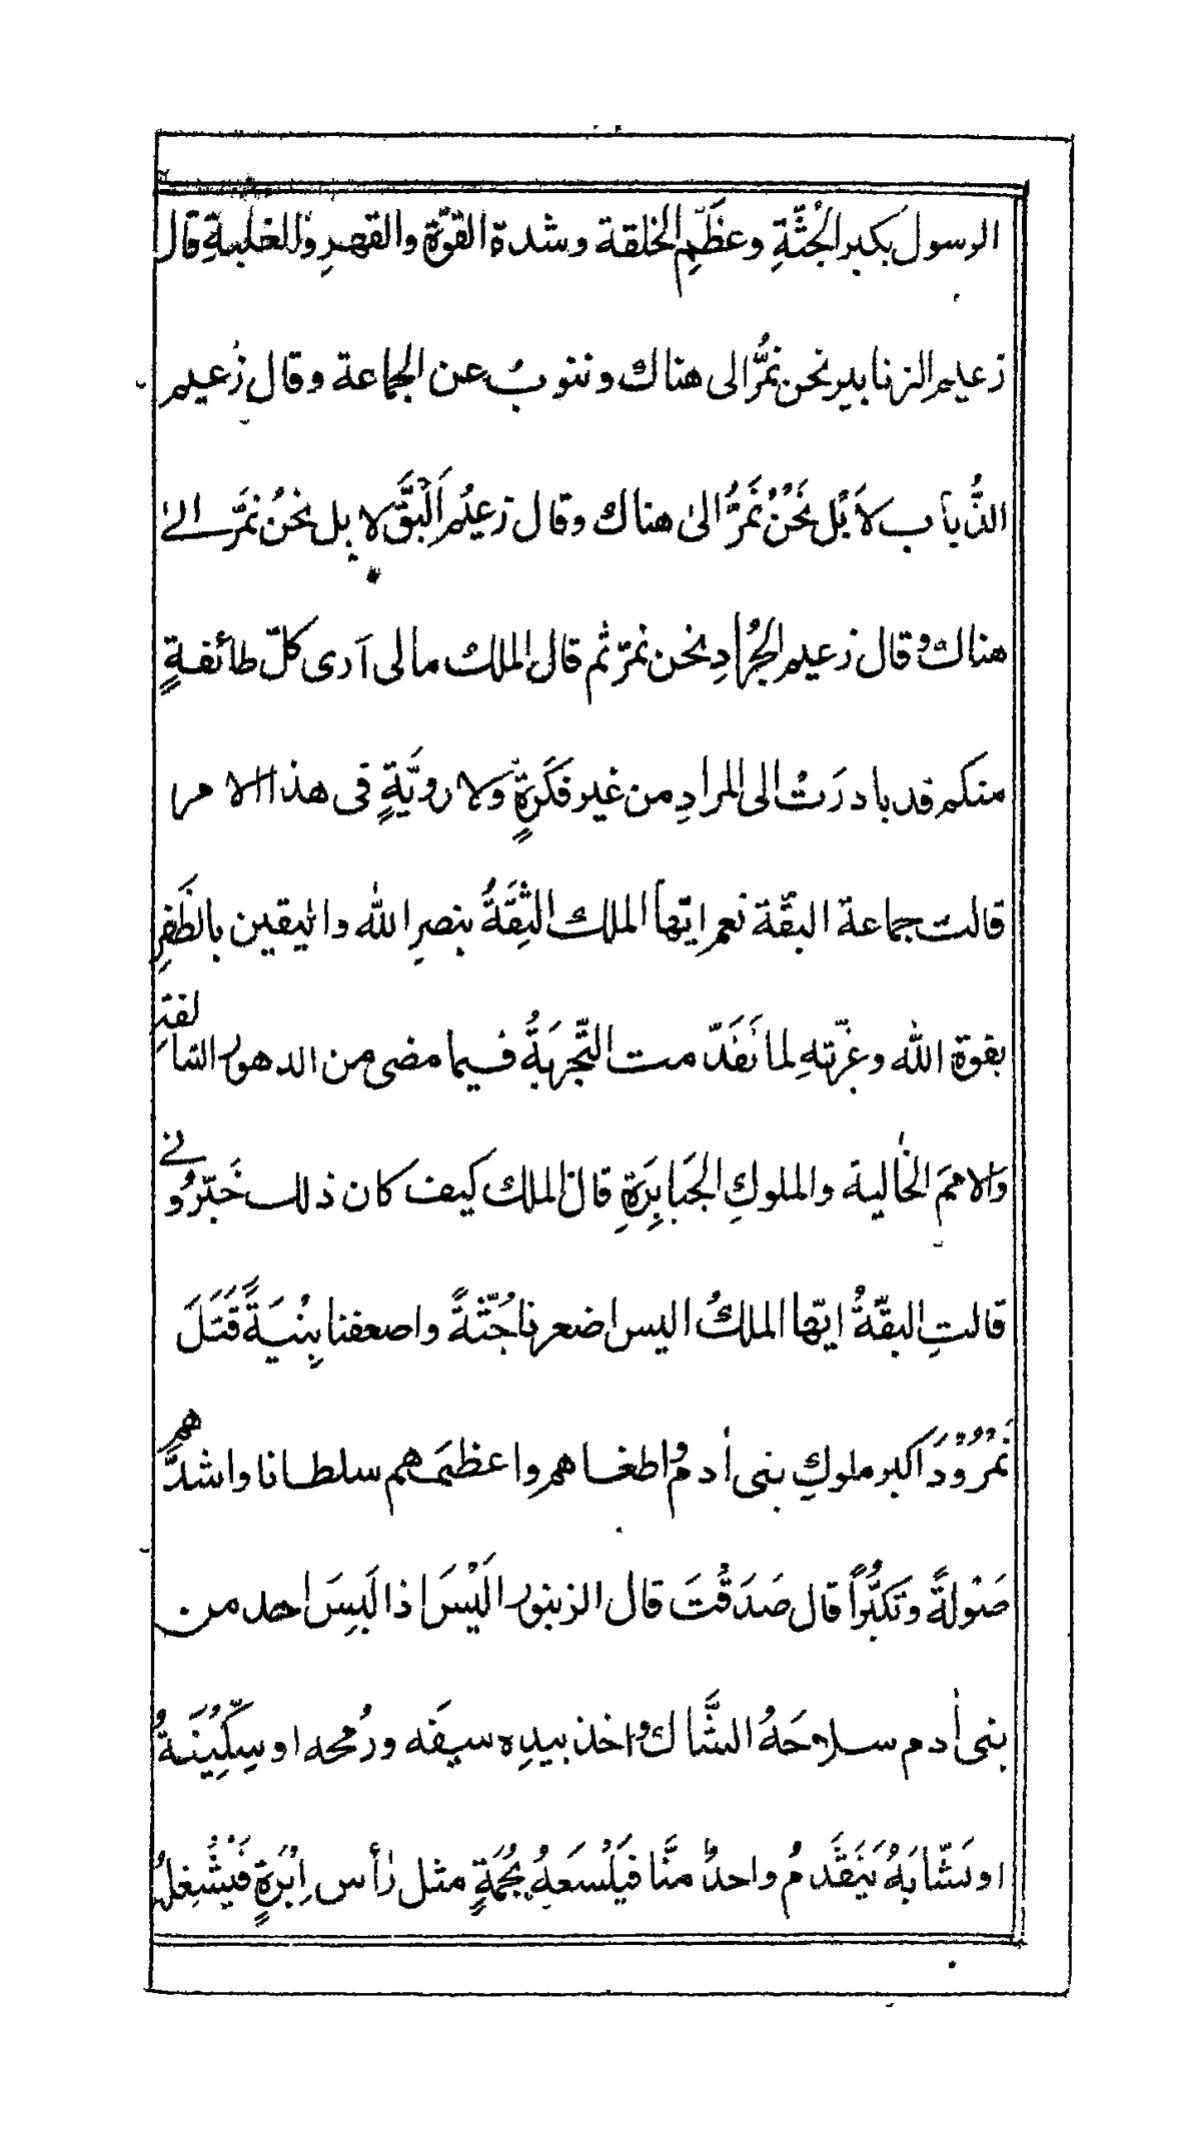 الرسول بكبر الجُثّةِ وعظَّمِ الخلقة وشدة القوّة والقهرِ وَالغلبةِ قال
زعيم الزنابير نحن نمُرُّ الى هناك وننوبُ عن الجماعة وقال زعيم
الذُّباب لاَ بَلْ نَحْنُ نَمُرُّ الىٰ هناك وقال زعيمُ اَلْبَقَّ لا بل نحنُ نَمرَّ الىٰ
هناك وقال زعيم الجُرادِ نحن نمرّ ثم قال الملك مالى آرى كلّ طائفةٍ
منكم قد بادرَتْ الى المرادِ من غير فَكَرةٍ وَلا رويّةٍ فى هذا الامر
قالت جماعة البقّة نعم ايّها الملك الثِقَةُ بنصرِ الله واليقين بالظَفرِ
بقوة الله وعزّتهِ لما نَقَدّمت التّجرِبَةُ فيما مضى من الدهور السّالفة
وَالاممَ الخٰالية والملوكِ الجَبابِرَةِ قال الملك كيف كان ذلك خَبّروُنے
قالتِ البقّةُ ايّها الملكُ اليس اضعرنا جُثّةً واصعفنا بِنْيَةً قَتَلَ
نَمْرُوْدَ اكبر ملوكِ بنى أدم وُاطغاهم واعظمَهم سلطانا واشدَّهم
صَوْلةً وتَكَبُّراً قال صَدَقْتَ قال الزبنور الَيْسَ اذا لَبِسَ احد من
بنى أدم سلاحَهُ الشَّاك واخذ بيدِه سيفَه ورُمحه او سِكِّيْنَةُ
او نشّابَهُ يَتَقَدمُ واحدٌ منَّا فيَلْسَعهُ بِحُمَةٍ مثل رأس اِبْرَةٍ فَيْشْغِلُ